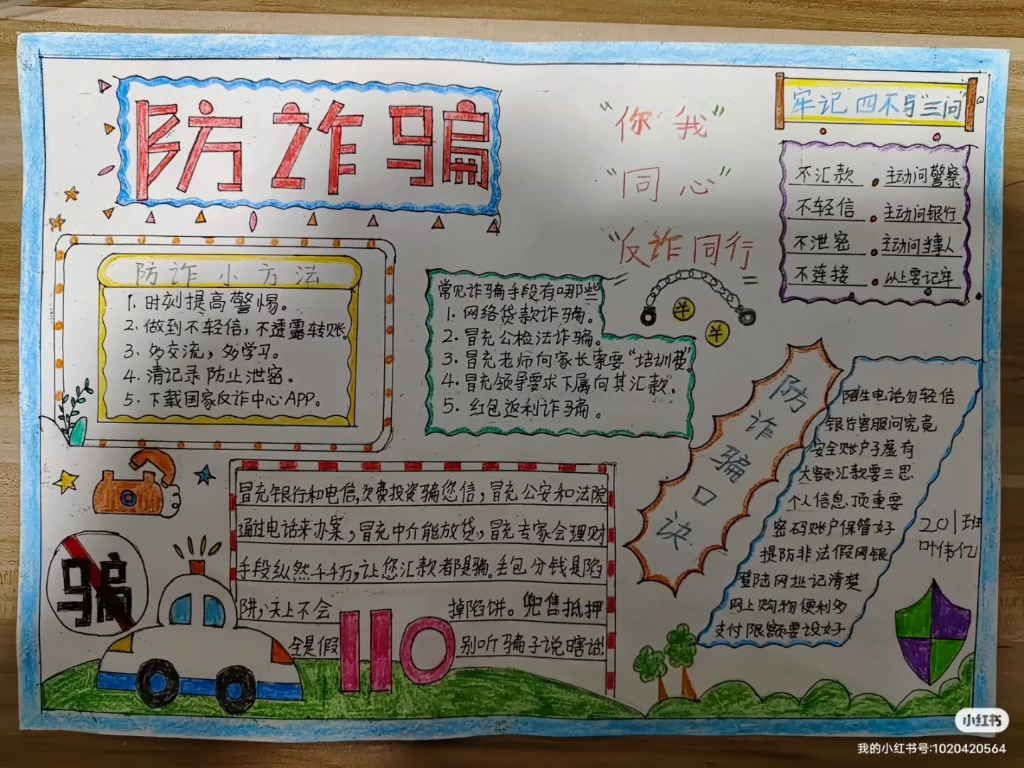 防诈骗
"你我"
"同心"
"反诈同行"
牢记四不与三问
不汇款 . 主动问警察
不轻信 . 主动问银行
不泄密 . 主动问当事人
不连接 . 以上要记牢
防诈小方法
1. 时刻提高警惕。
2. 做到不轻信，不透露转账。
3. 多交流，多学习。
4. 清记录防止泄密。
5. 下载国家反诈中心APP。
常见诈骗手段有哪些
1. 网络贷款诈骗。
2. 冒充公检法诈骗。
3. 冒充老师向家长索要"培训费"
4. 冒充领导要求下属向其汇款。
5. 红包返利诈骗。
羊
羊
防诈骗口诀
陌生电话勿轻信
银行客服问究竟
安全账户子虚有
大额汇款要三思
个人信息顶重要
密码账户保管好
提防非法假网银
登陆网址记清楚
网上购物便利多
支付限额要设好
201班
叶伟亿
冒充银行和电信，欠费投资骗您信；冒充公安和法院
通过电话来办案，冒充中介能放贷，冒充专家会理财
手段纵然千千万，让您汇款都是骗。丢包分钱是陷
阱，天上不会 掉陷饼。兜售抵押
全是假 别听骗子说瞎话
骗
110
小红书
我的小红书号:1020420564